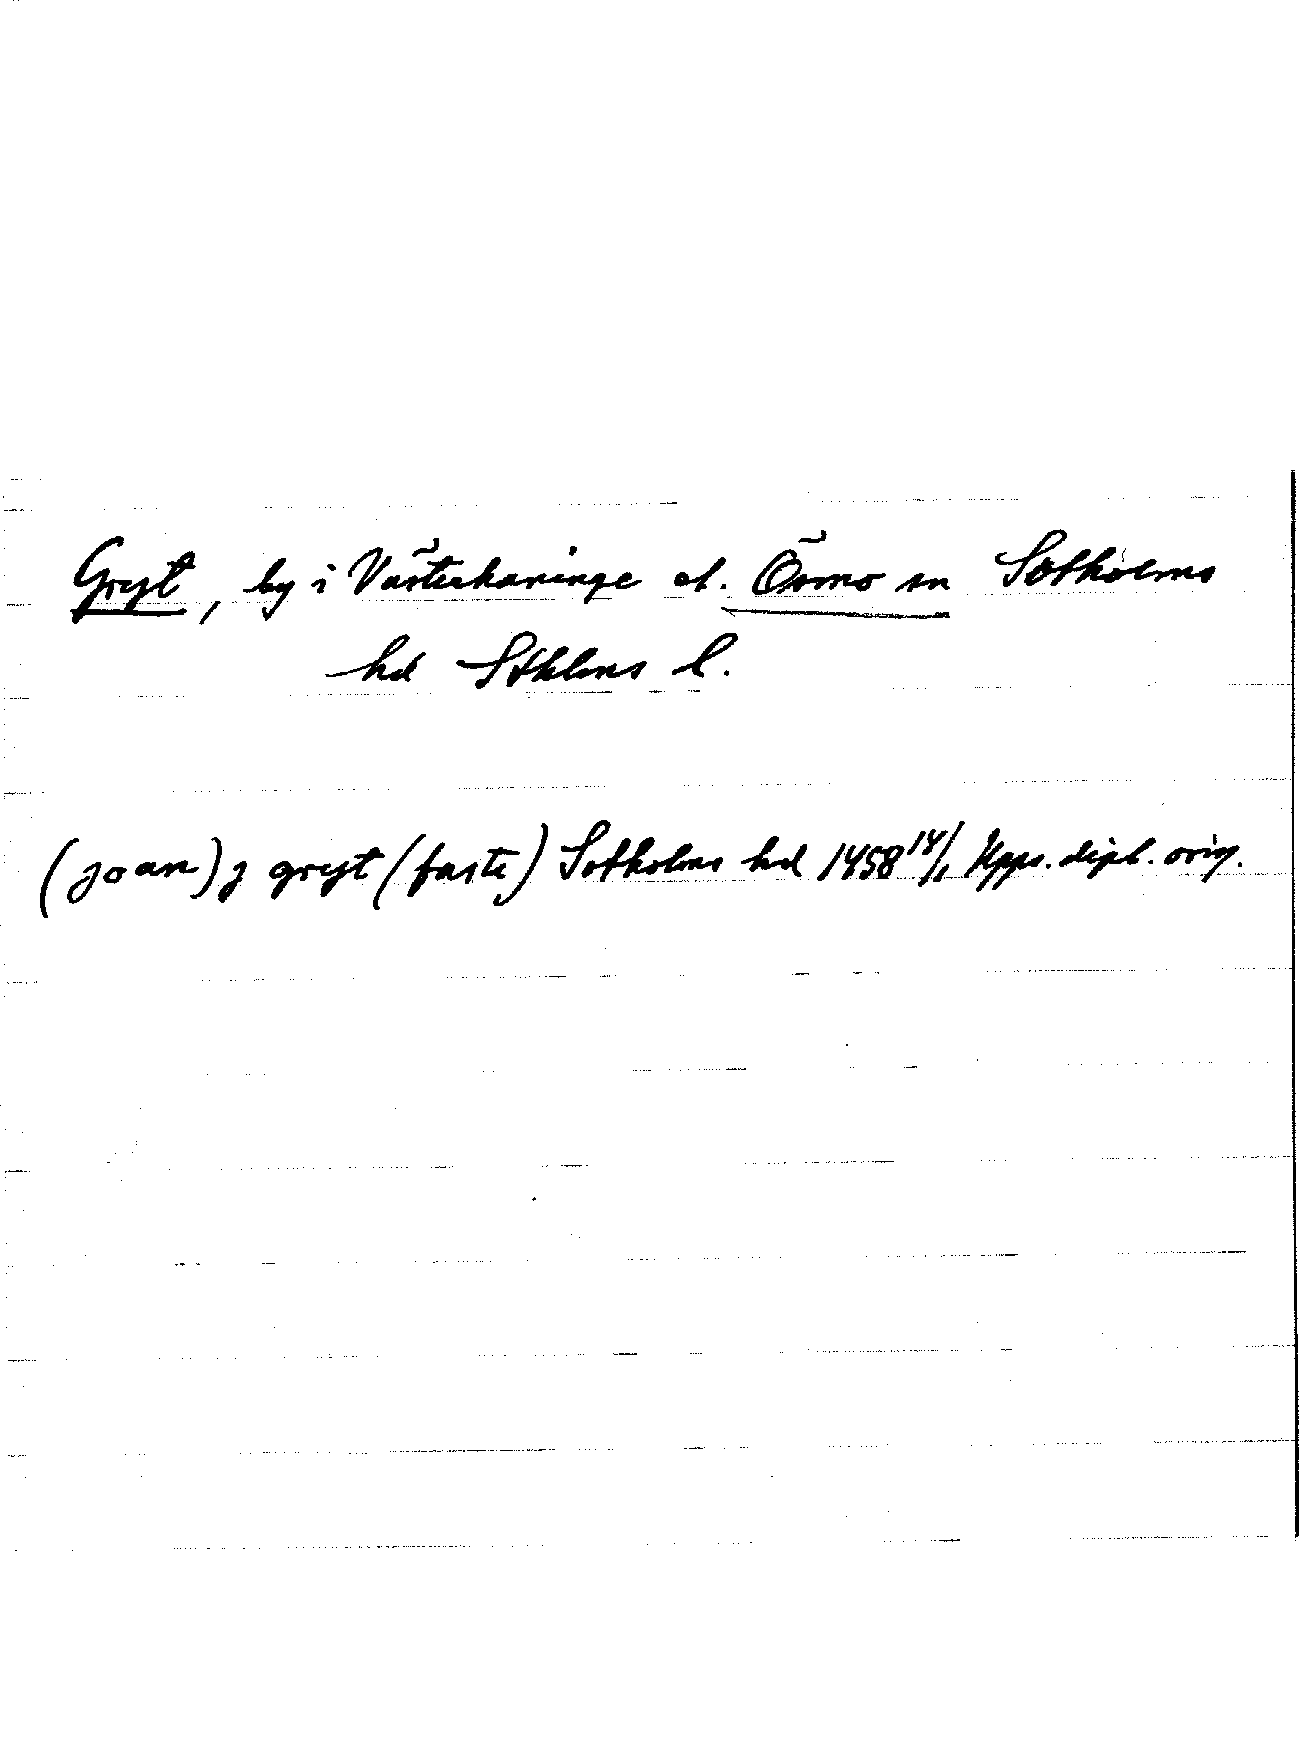 Gryt, by i Västerhaninge el. Ösmo sn Sotholms
hd Sthlms l.
(joan) j gryt (faste) Sotholms hd 1458 14/1 Upps. dipl. orig.